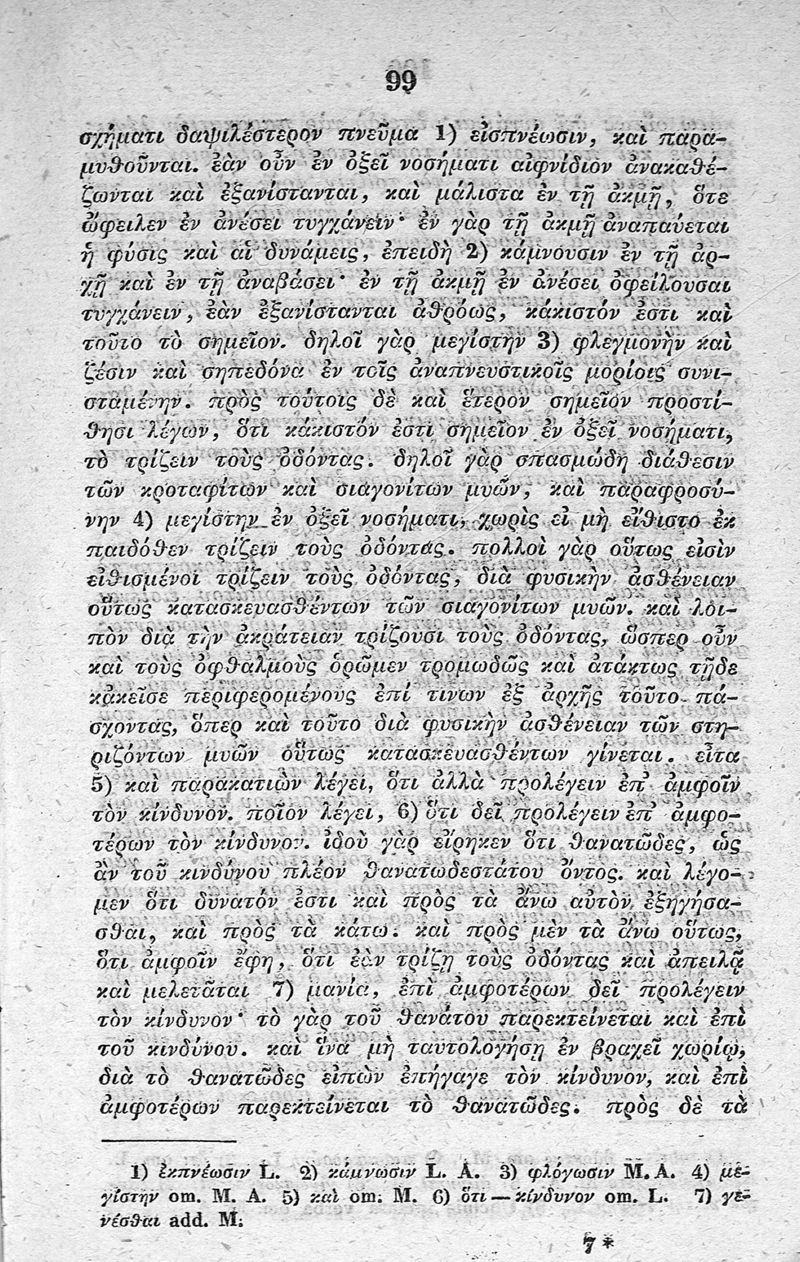 99
σχήματι δαψιλέστερον πνεῦμα 1) εἰσπνέωσιν, καὶ παρα-
μυθοῦνται. ἐὰν οὖν ἐν ὀξεῖ νοσήματι αἰφνίδιον ἀνακαθέ-
ζωνται καὶ ἐξανίστανται, καὶ μάλιστα ἐν τῇ ἀκμῇ, ὅτε
ὤφειλεν ἐν ἀνέσει τυγχάνειν· ἐν γὰρ τῇ ἀκμῇ ἀναπαύεται
ἡ φύσις καὶ αἱ δυνάμεις, ἐπειδὴ 2) κάμνουσιν ἐν τῇ ἀρ-
χῇ καὶ ἐν τῇ ἀναβάσει· ἐν τῇ ἀκμῇ ἐν ἀνέσει ὀφείλουσαι
τυγχάνειν, ἐὰν ἐξανίστανται ἀθρόως, κάκιστόν ἐστι καὶ
τοῦτο τὸ σημεῖον. δηλοῖ γὰρ μεγίστην 3) φλεγμονὴν καὶ
ζέσιν καὶ σηπεδόνα ἐν τοῖς ἀναπνευστικοῖς μορίοις συνι-
σταμένην. πρὸς τούτοις δὲ καὶ ἕτερον σημεῖον προστί-
θησι λέγων, ὅτι κάκιστόν ἐστι σημεῖον ἐν ὀξεῖ νοσήματι,
τὸ τρίζειν τοὺς ὀδόντας. δηλοῖ γὰρ σπασμώδη διάθεσιν
τῶν κροταφίτων καὶ σιαγονίτων μυῶν, καὶ παραφροσύ-
νην 4) μεγίστην ἐν ὀξεῖ νοσήματι, χωρὶς εἰ μὴ εἴθιστο ἐκ
παιδόθεν τρίζειν τοὺς ὀδόντας. πολλοὶ γὰρ οὕτως εἰσὶν
εἰθισμένοι τρίζειν τοὺς ὀδόντας, διὰ φυσικὴν ἀσθένειαν
οὕτως κατασκευασθέντων τῶν σιαγονίτων μυῶν. καὶ λοι-
πὸν διὰ τὴν ἀκράτειαν τρίζουσι τοὺς ὀδόντας, ὥσπερ οὖν
καὶ τοὺς ὀφθαλμοὺς ὁρῶμεν τρομωδῶς καὶ ἀτάκτως τῇδε
κἀκεῖσε περιφερομένους ἐπί τινων ἐξ ἀρχῆς τοῦτο πά-
σχοντας, ὅπερ καὶ τοῦτο διὰ φυσικὴν ἀσθένειαν τῶν στη-
ριζόντων μυῶν οὕτως κατασκευασθέντων γίνεται. εἶτα
5) καὶ παρακατιὼν λέγει, ὅτι ἀλλὰ προλέγειν ἐπ᾽ ἀμφοῖν
τὸν κίνδυνον. ποῖον λέγει, 6) ὅτι δεῖ προλέγειν ἐπ᾽ ἀμφο-
τέρων τὸν κίνδυνον. ἰδοὺ γὰρ εἴρηκεν ὅτι θανατῶδες, ὡς
ἂν τοῦ κινδύνου πλέον θανατωδεστάτου ὄντος. καὶ λέγο-
μεν ὅτι δυνατόν ἐστι καὶ πρὸς τὰ ἄνω αὐτὸν ἐξηγήσα-
σθαι, καὶ πρὸς τὰ κάτω. καὶ πρὸς μὲν τὰ ἄνω οὕτως,
ὅτι ἀμφοῖν ἔφη, ὅτι ἐὰν τρίζῃ τοὺς ὀδόντας καὶ ἀπειλᾷ
καὶ μελετᾶται 7) μανία, ἐπὶ ἀμφοτέρων δεῖ προλέγειν
τὸν κίνδυνον· τὸ γὰρ τοῦ θανάτου παρεκτείνεται καὶ ἐπὶ
τοῦ κινδύνου. καὶ ἵνα μὴ ταυτολογήσῃ ἐν βραχεῖ χωρίῳ,
διὰ τὸ θανατῶδες εἰπὼν ἐπήγαγε τὸν κίνδυνον, καὶ ἐπὶ
ἀμφοτέρων παρεκτείνεται τὸ θανατῶδες. πρὸς δὲ τὰ
1) ἐκπνέωσιν L. 2) κάμνωσιν L. A. 3) φλόγωσιν M. A. 4) με-
γίστην om. M. A. 5) καὶ om. M. 6) ὅτι — κίνδυνον om. L. 7) γε-
νέσθαι add. M.
7*